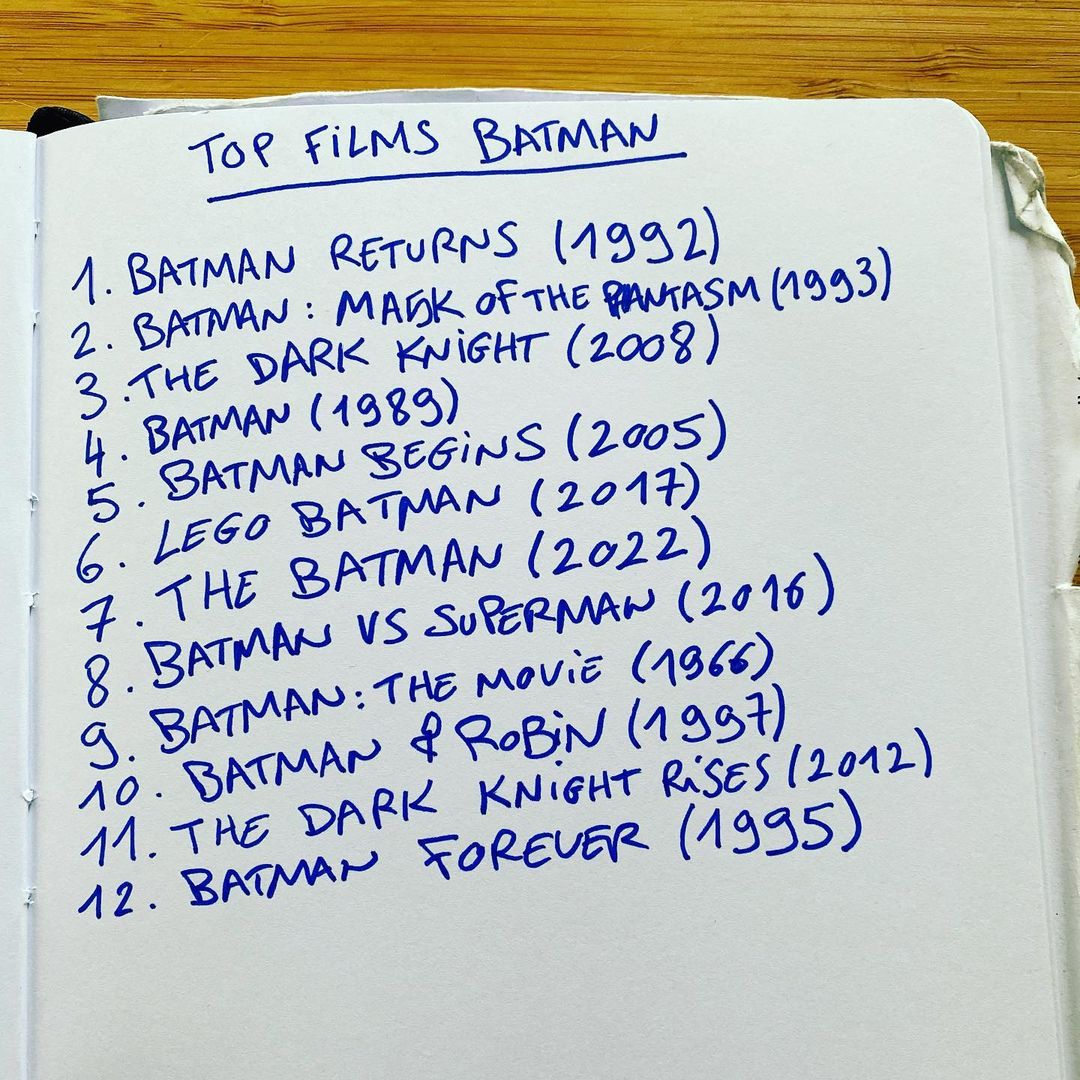 TOP FiLMS BATMAN
1. BATMAN RETURNS (1992)
2. BATMAN: MASK OF THE PHANTASM (1993)
3. THE DARK KNiGHT (2008)
4. BATMAN (1989)
5. BATMAN BEGiNS (2005)
6. LEGO BATMAN (2017)
7. THE BATMAN (2022)
8. BATMAN VS SUPERMAN (2016)
9. BATMAN: THE MOViE (1966)
10. BATMAN & ROBiN (1997)
11. THE DARK KNiGHT RiSES (2012)
12. BATMAN FOREVER (1995)